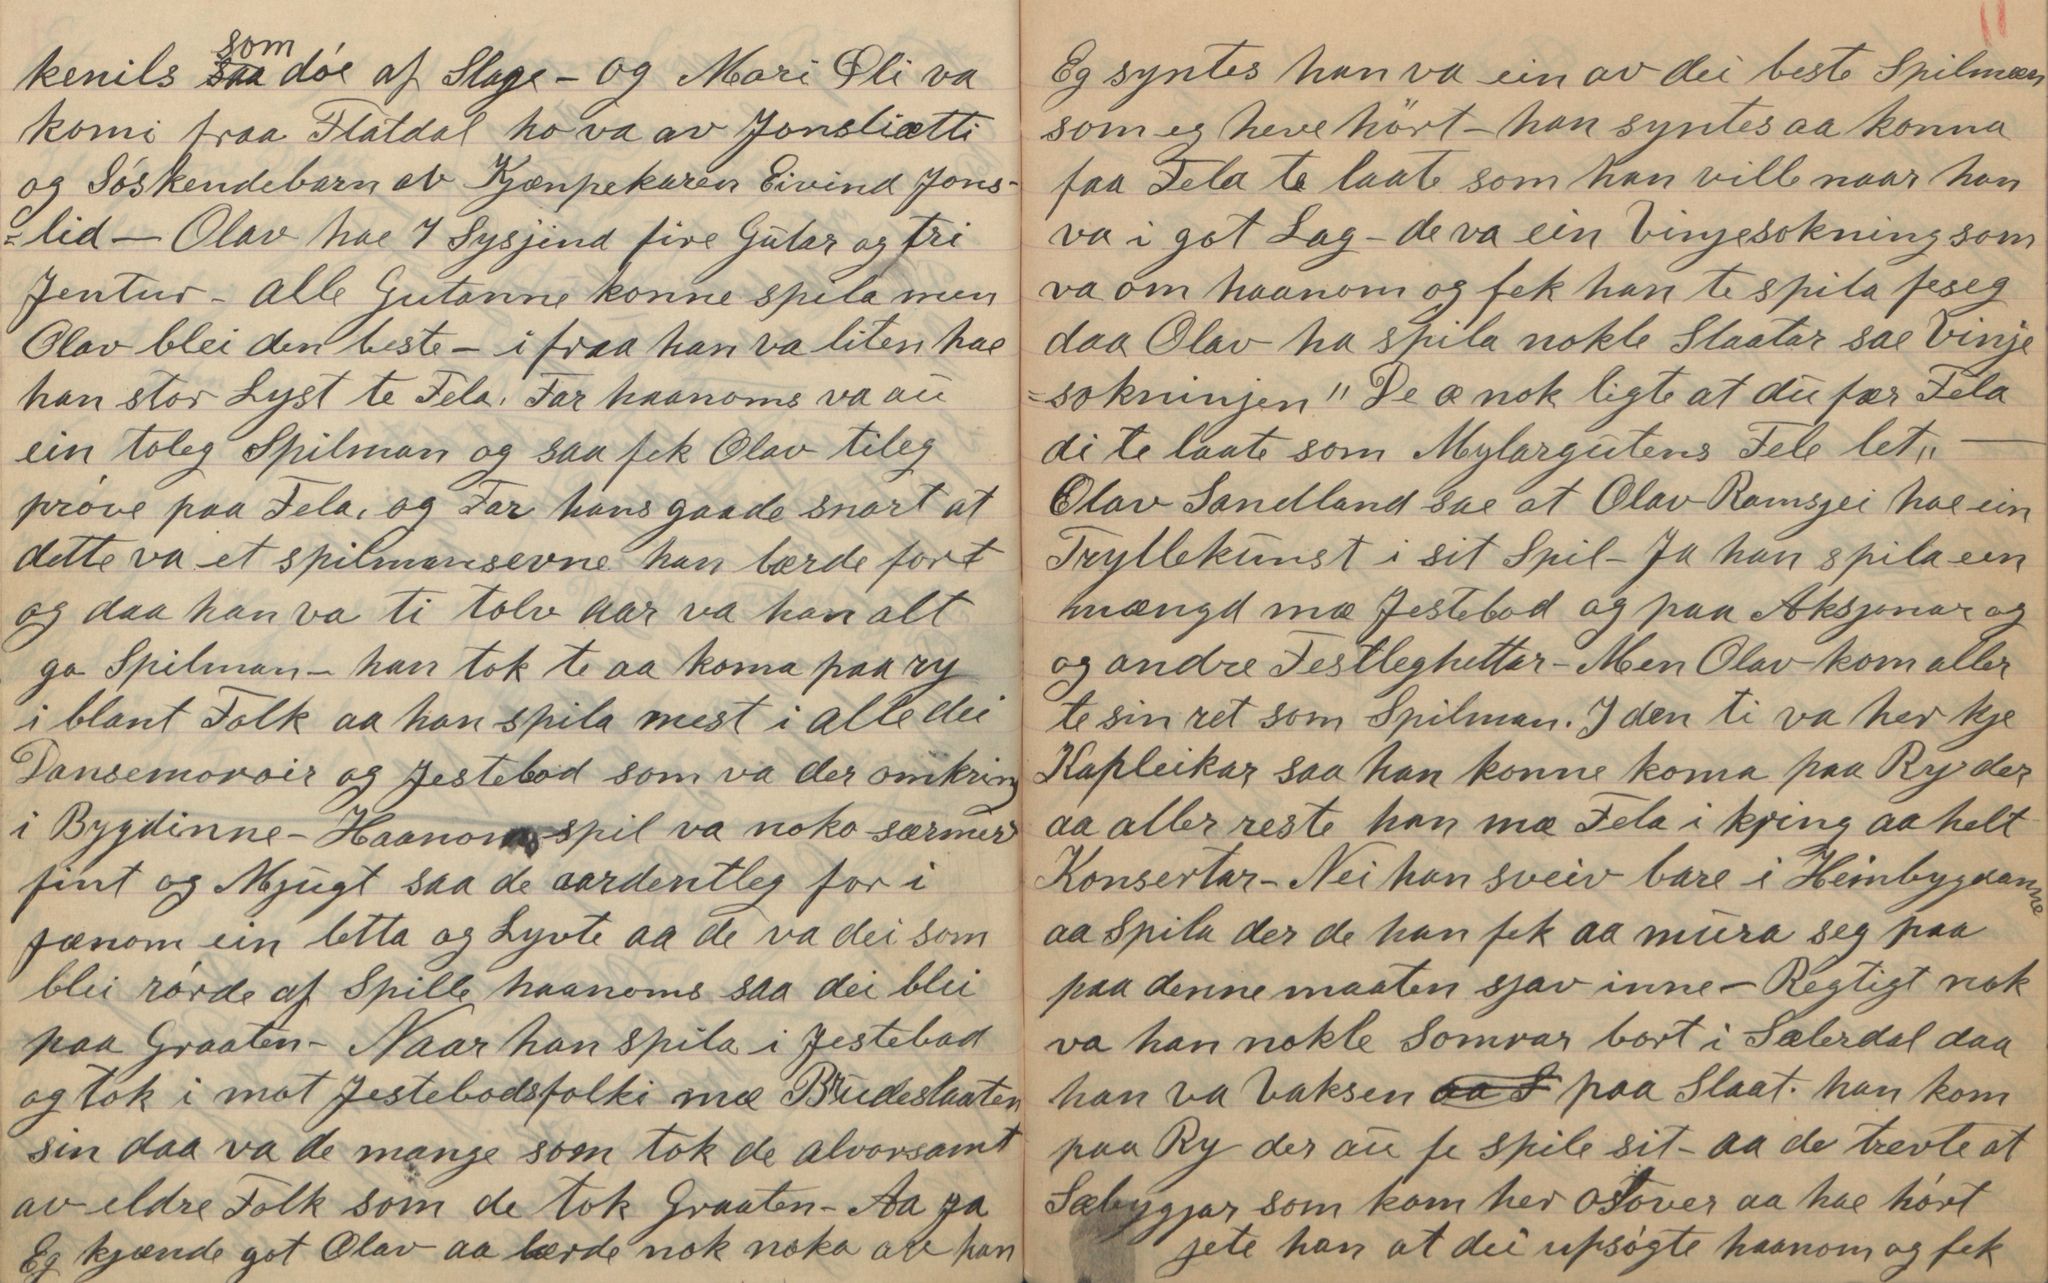 kenils som døe af Slage - og Mari Øli va
komi fraa Flatdal ho va av Jonsliætti
og Søskendebarn av Kjænpekaren Eivind Jons-
=lid — Olav hae 7 Sysjind fire Gutar og tri
Jentur - alle Gutanne konne spila men
Olav blei den beste - i fraa han va liten hae
han stor Lyst te Fela. Far haanoms va au
ein toleg Spilman og saa fek Olav tileg
prøve paa Fela, og Far hans gaade snart at
dette va et spilmansevne han lærde fort
og daa han va ti tolv aar va han alt
go Spilman - han tok te aa koma paa ry
i blant Folk aa han spila mest i alle dei
Dansemoroir og Jestebod som va der omkring
i Bygdinne - Haanoms spil va noko særmerr
fint og Mjugt saa de aardentleg for i
jænom ein letta og Lyvte aa de va dei som
blei rørde af Spille haanoms saa dei blei
paa Graaten - Naar han spila i Jestebod
og tok i mot Jestebodsfolki mæ Brudeslaaten
sin daa va de mange som tok de alvorsamt
av eldre Folk som de tok Graaten - Aa ja
Eg kjænde got Olav aa lærde nok noko av han
11
Eg syntes han va ein av dei beste Spilmæn
som eg heve hört - han syntes aa konna
faa Fela te laate som han ville naar han
va i got Lag - de va ein Vinjesokning som
va om haanom og fek han te spila feseg
daa Olav ha spila nokle Slaatar sae Vinje
=sokningjen "De æ nok ligte at du fær Fela
di te laate som Mylargutens Fele let" —
Olav Sandland sae at Olav Ramsjei hae ein
Tryllekunst i sit Spil - Ja han spila ein
mængd mæ Jestebod og paa Aksjonar og
og andre Festleghettar - Men Olav kom aller
te sin ret som Spilman. I den ti va her kje
Kapleikar saa han konne koma paa Ry der
aa aller reste han mæ Fela i kring aa helt
Konsertar - Nei han sveiv bare i Heimbygdanne
aa Spila der de han fek aa mura seg paa
paa denne maaten sjav inne - Regtigt nok
va han nokle Somrar bort i Sæterdal daa
han va Vaksen paa Slaat. han kom
paa Ry der au fe spile sit - aa de trevte at
Sæbyggjar som kom her osover aa hae hørt
jete han at dei upsøgte haanom og fek